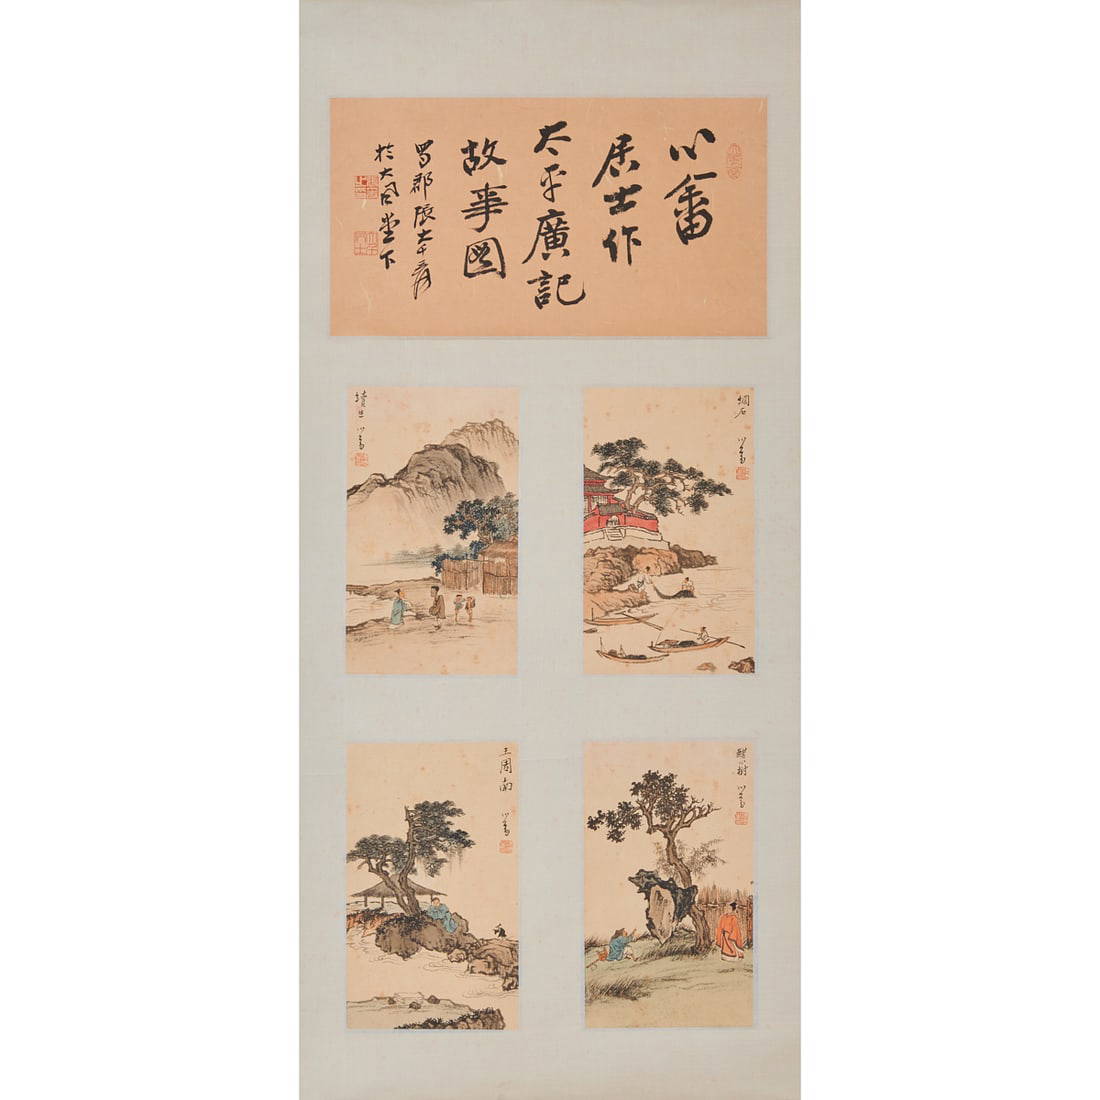 心畬
居士作
太平廣記
故事圖
蜀郡張大千爰
於大風堂下
網石
心畬
續生
心畬
醋心樹
心畬
王周南
心畬